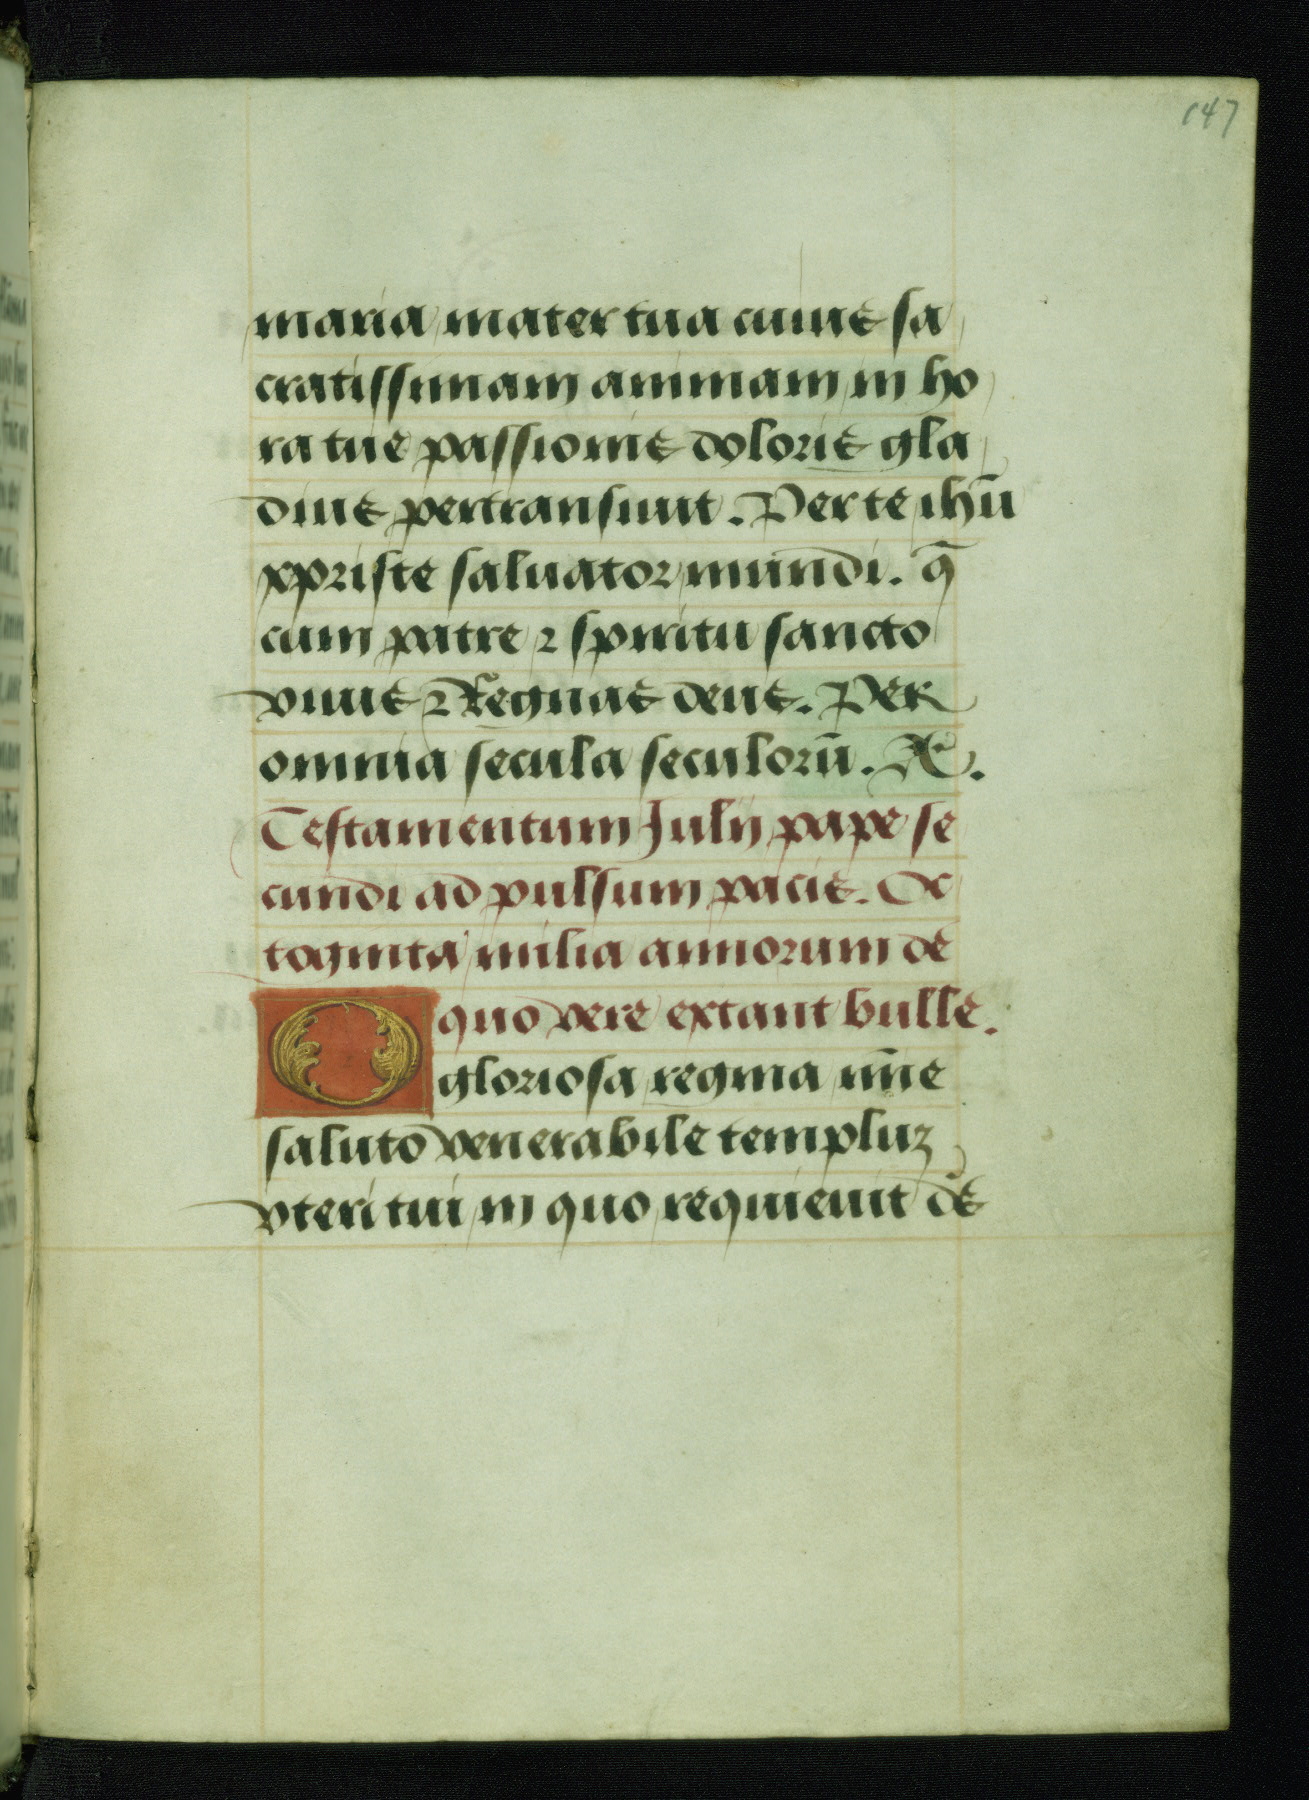 147
maria mater tua cuius sa
cratissimam animam in ho
ra tue passionis doloris gla
dius pertransiuit. Per te ihū
xpriste saluator mundi. q̄
cum patre ⁊ spiritu sancto
viuis ⁊ Regnas deus. Per
omnia secula seculorū. A.
Testamentum Julij pape se
cundi ad pulsum pacis. Oc
toginta milia annorum de
quo vere extant bulle.
O gloriosa regina mīe
saluto venerabile templuꝫ
vteri tui in quo requieuit dē